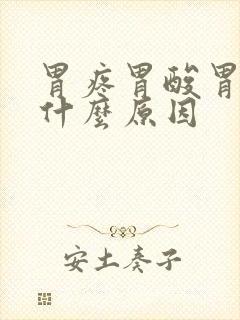 胃疼胃酸胃
什麼原因
安土奏子